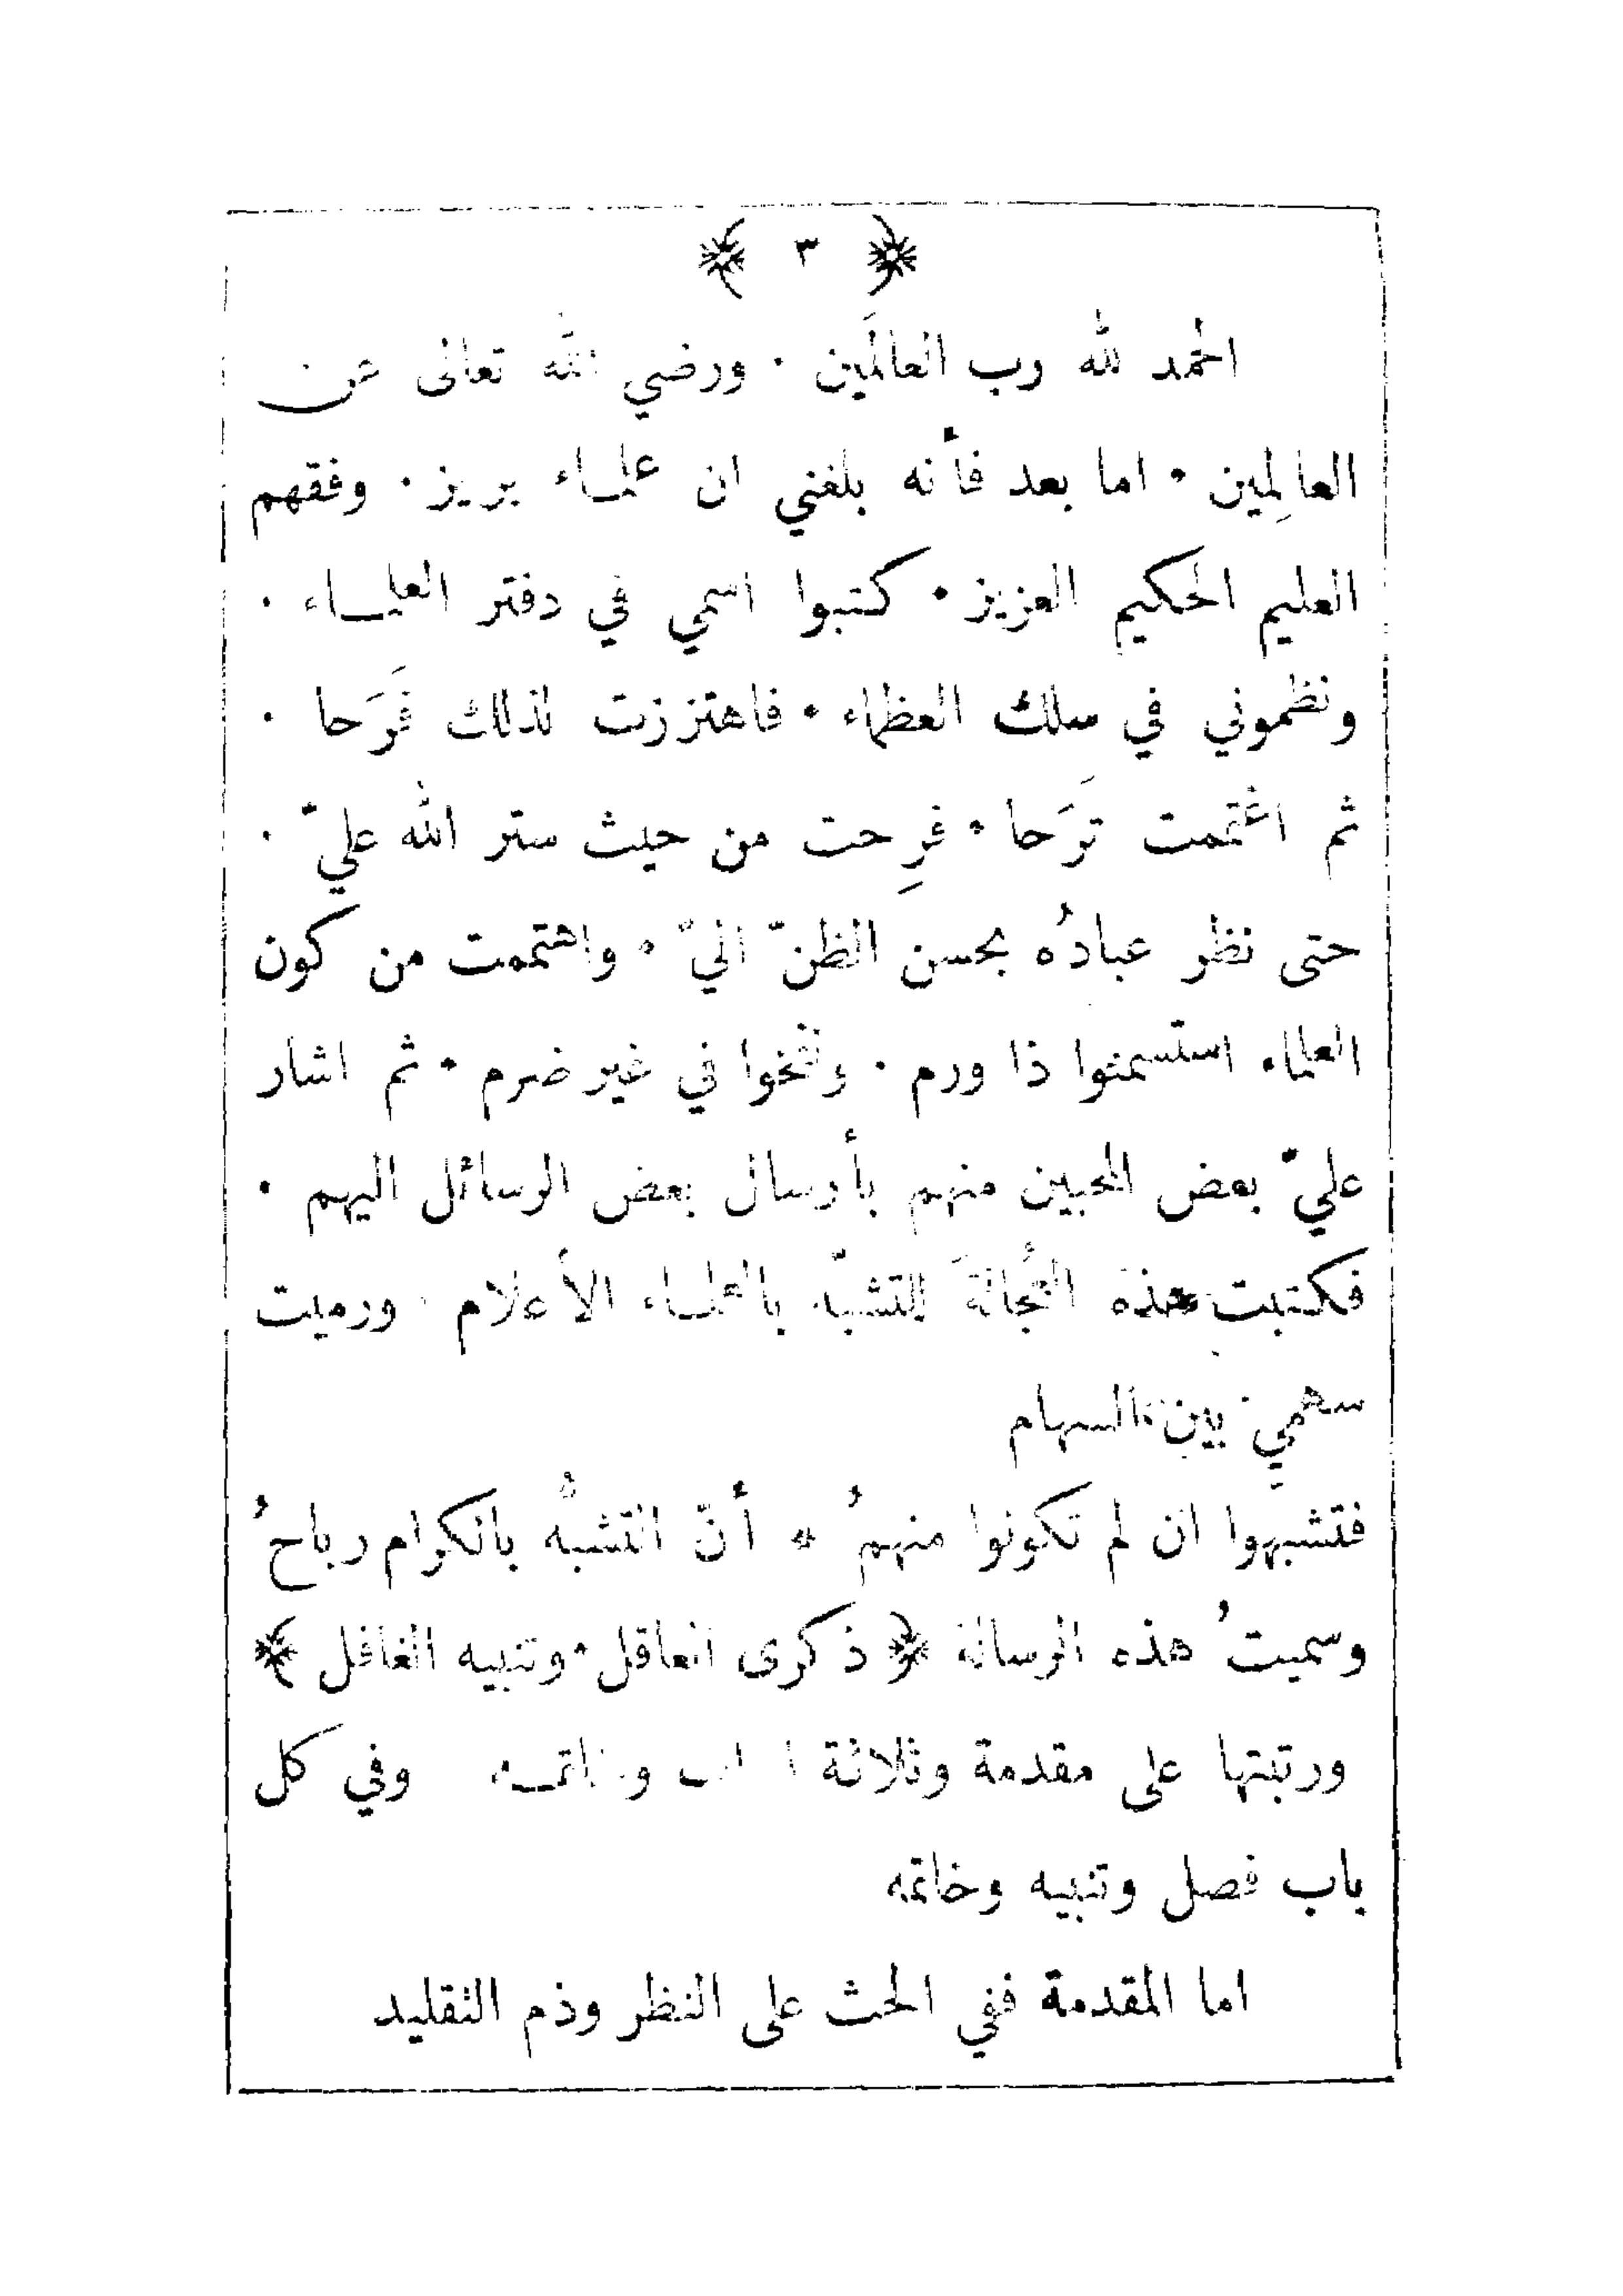 ﴿ ٣ ﴾
الحمد لله رب العالَمين . ورضي الله تعالى عن
العالِمين . اما بعد فأنه بلغني ان علماء بريز . وفقهم
العليم الحكيم العزيز . كتبوا اسمي في دفتر العلماء .
ونظموني في سلك العظماء . فاهتززت لذلك فَرَحا .
ثم اغتممت تَرَحا . فرِحت من حيث ستر الله عليّ .
حتى نظر عبادُه بحسن الظنّ اليّ . واهتممت من كون
العلماء استسمنوا ذا ورم . ونفخوا في غير ضرم . ثم اشار
عليّ بعض المحبين منهم بأرسال بعض الرسائل اليهم .
فكتبت هذه العُجالةَ للتشبّه بالعلماء الأعلام . ورميت
سهمي بين السهام
فتشبهوا ان لم تكونوا منهمُ * أنّ التشبُّه بالكرام رباحُ
وسميتُ هذه الرسالة ﴿ ذكرى العاقل . وتنبيه الغافل ﴾
ورتبتها على مقدمة وثلاثة وفي كل
باب فصل وتنبيه وخاتمه
اما المقدمة ففي الحث على النظر وذم التقليد